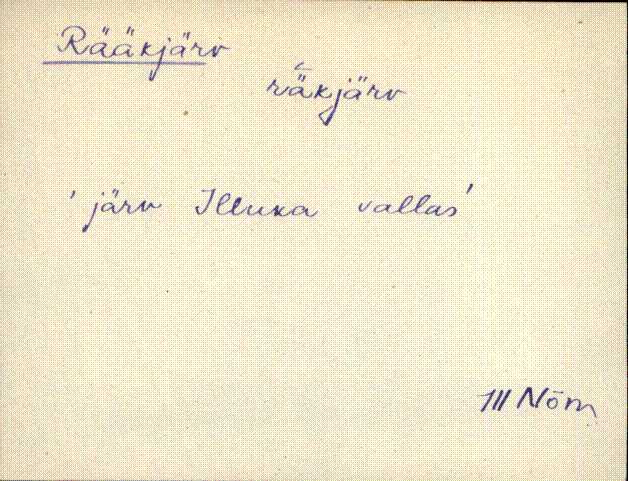 Rääkjärv
rǟkjärv
' järv Illuka vallas'
III Nõm